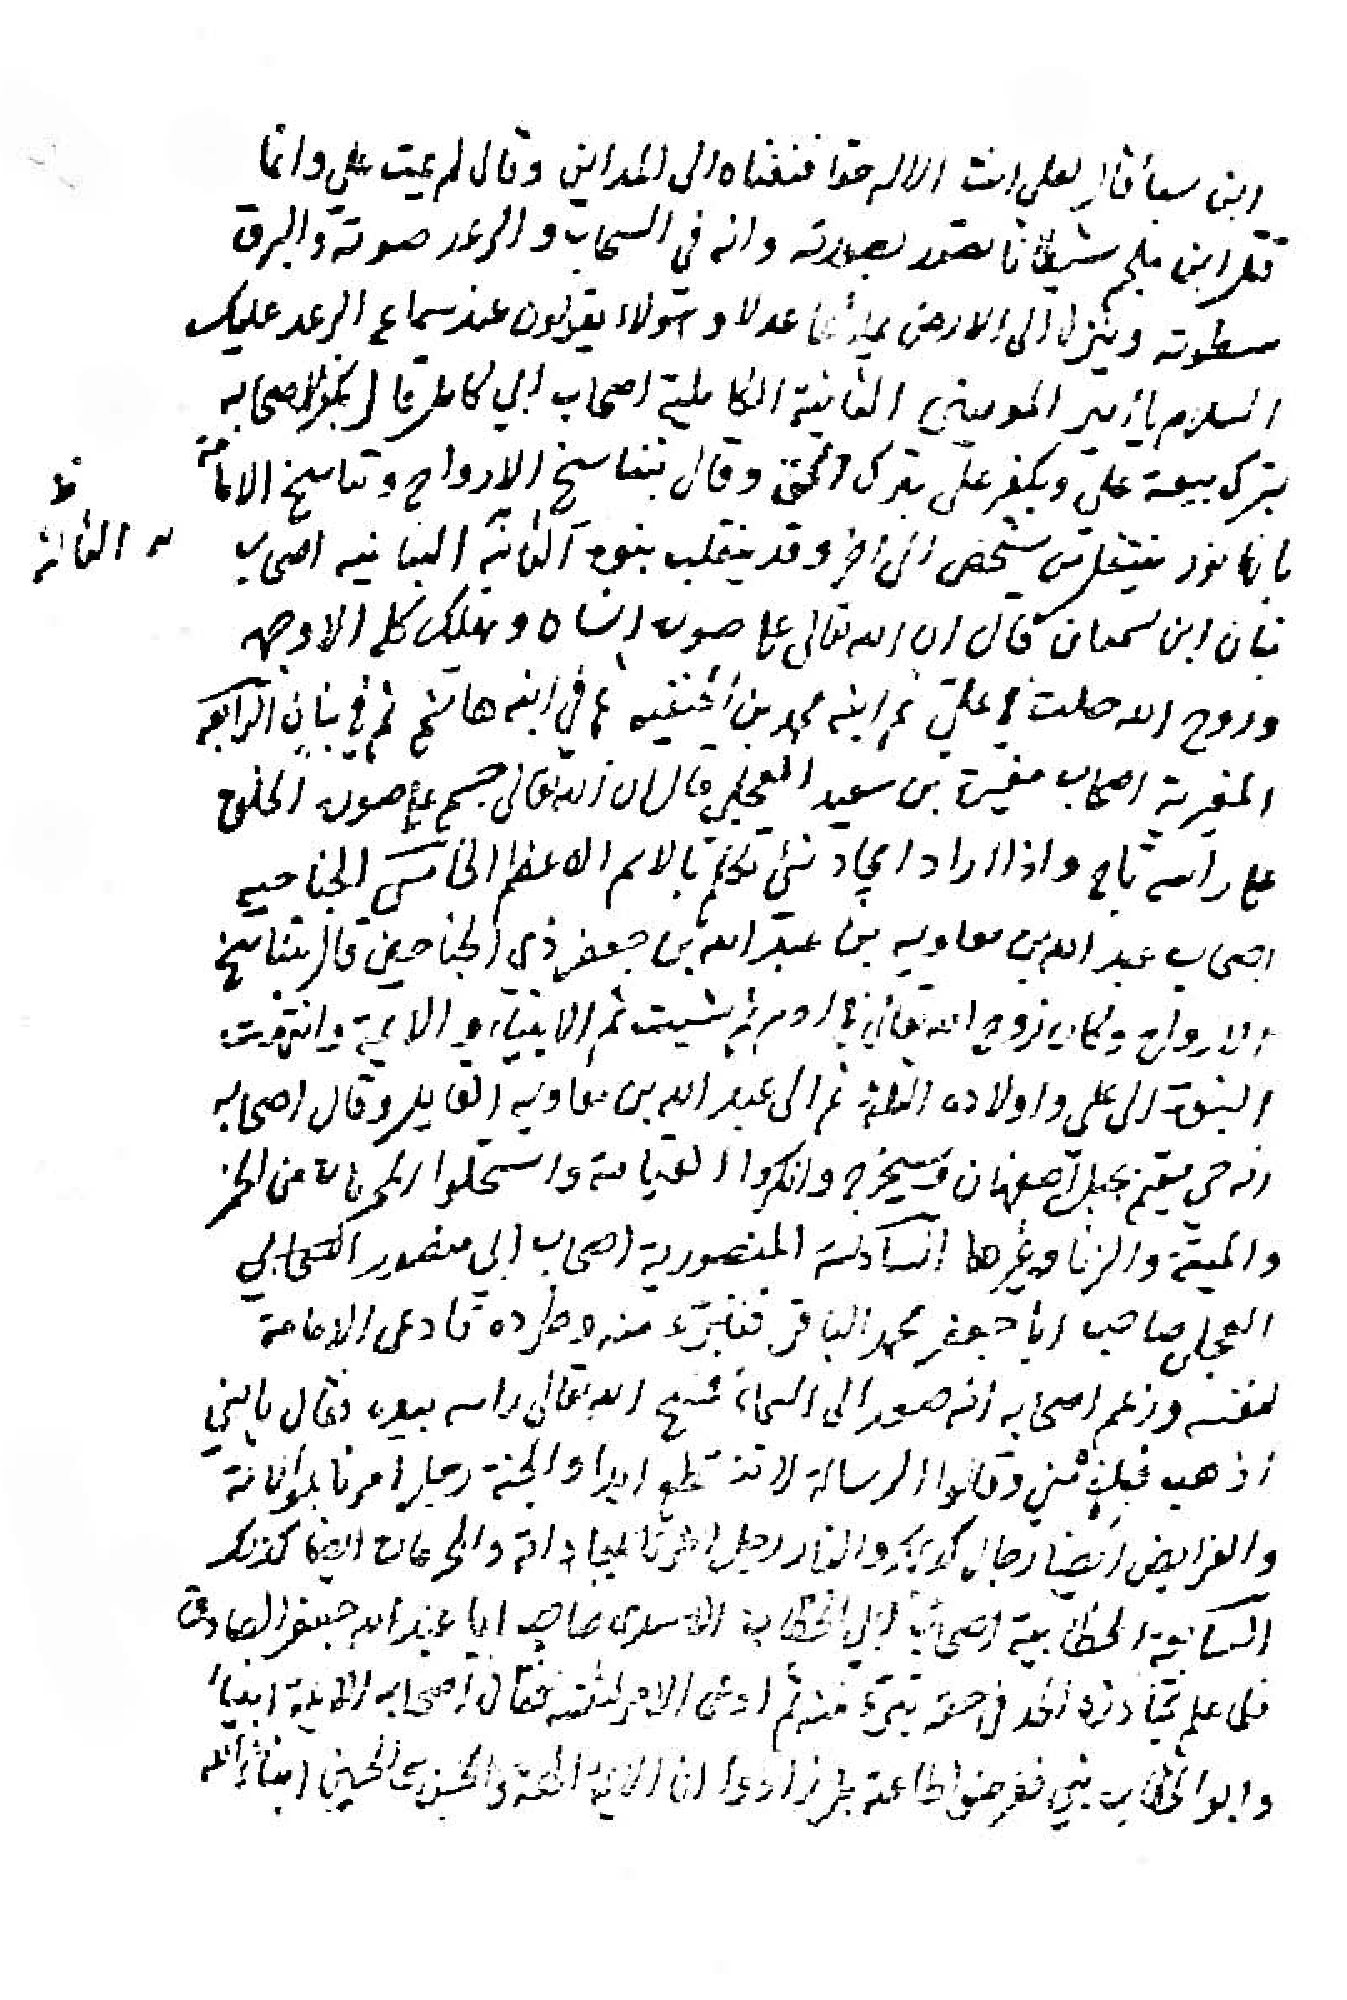 ابن سبأ قال لعلي انت الاله حقا فنفاه الى المداين وقال لم يمت علي وانما
قتل ابن ملجم شيطانا تصور بصورته وانه في السحاب والرعد صوته والبرق
سطوته وينزل الى الارض يملأها عدلا وهولاء يقولون عند سماع الرعد عليك
السلام يا أمير المومنين الثانية الكاملية اصحاب ابي كامل قال بكفر الصحابه
بترك بيعة علي وبكفر علي بترك الحق وقال بتناسخ الارواح وتناسخ الامامة
بانها نور ينتقل من شخص الى اخر وقد ينقلب بنوة الثانية البنانيه اصحاب
ظ
الثالثة
بنان ابن سمعان قال ان الله تعالى على صورة انسان ويهلك كله الا وجهه
وروح الله حلت في علي ثم ابنه محمد بن الحنفيه ثم في ابنه هاشم ثم في بنان الرابعة
المغيرية اصحاب مغيرة بن سعيد العجلي قال ان الله تعالى جسم على صورة الخلق
على راسه تاج واذا اراد ايجاد شئ تكلم بالاسم الاعظم الخامس الجناحيه
اصحاب عبد الله بن معاويه بن عبد الله بن جعفر ذي الجناحين قال بتناسخ
الارواح وكان روح الله تعالى في ادم ثم شيث ثم الانبياء والايمة وانتهت
النبوة الى علي واولاده الثلثة ثم الى عبد الله بن معاويه القايل وقال اصحابه
انه حي مقيم بجبل اصفهان وسيخرج وانكروا القيامة واستحلوا المحرمات من الخمر
والميتة والزنا وغيرها السادسة المنصورية اصحاب ابي منصور
العجلي صاحب ابا جعفر محمد الباقر فتبرء منه وطرده فادعى الامامة
لنفسه وزعم اصحابه انه صعد الى السماء فمسح الله تعالى راسه بيده وقال يا بني
اذهب فبلغ عني وقالوا الرسالة لا تنقطع ابدا والجنة رجل امرنا بموالاته
والفرايض ايضا رجال والنار رجل امرنا بمعاداته والمحرمات ايضا كذلك
السابعة الخطابية اصحاب ابي الخطاب الاسدي صاحب ابا عبد الله جعفر الصادق
فلما علم تجاوزه الحد في حقه تبرء منه ثم ادعى الامر لنفسه فقال اصحابه الايمة انبياء
وابو الخطاب نبي ففرضوا طاعته بل زادوا ان الايمة الهة والحسن والحسين ابناء الله